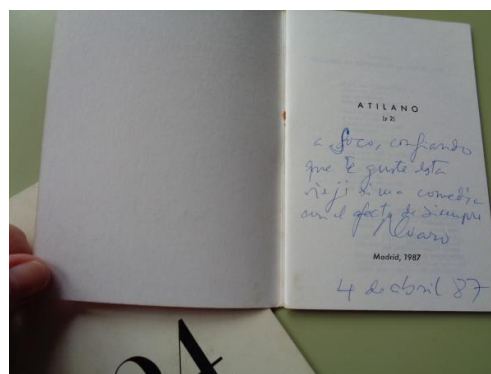 ATILANO
(y 2)
a Foco, confiando
que te guste esta
viejísima comedia
con el afecto de siempre
Alvaro
Madrid, 1987
4 de abril 87
24